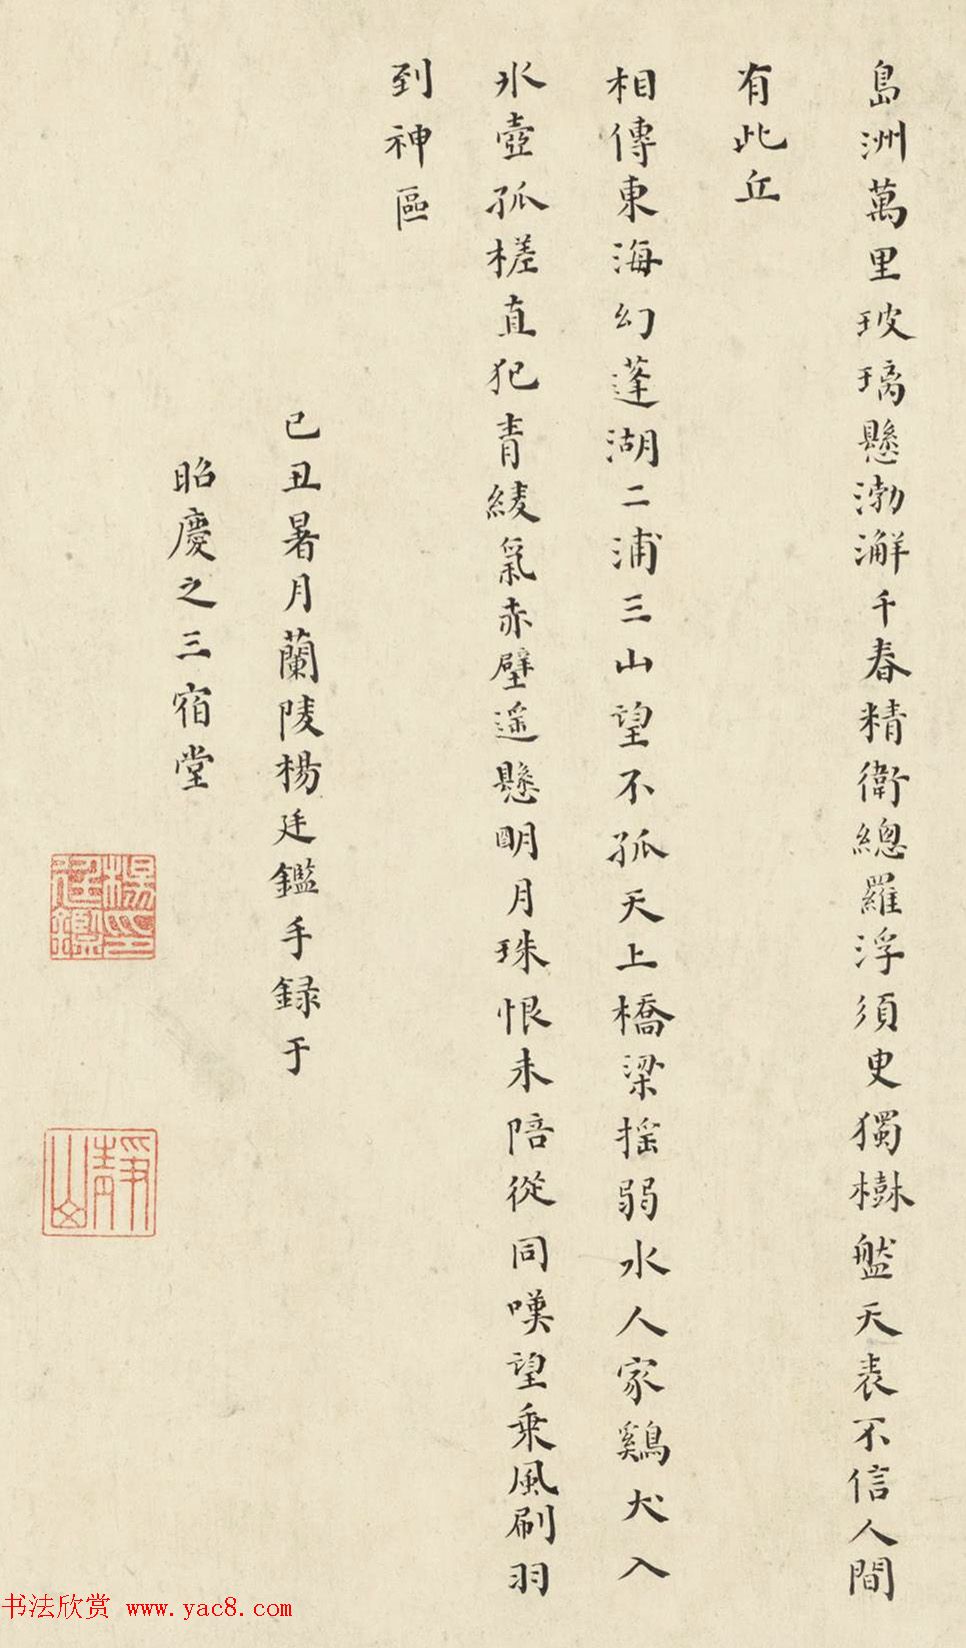 島洲萬里玻璃懸渤澥千春精衛總羅浮須臾獨樹盤天表不信人間
有此丘
相傳東海幻蓬湖二浦三山望不孤天上橋梁搖弱水人家鷄犬入
氷壺孤槎直犯青綾氣赤壁遥懸明月珠恨未陪從同嘆望乘風刷羽
到神區
己丑暑月蘭陵楊廷鑑手録于
昭慶之三宿堂
楊廷鑑印
靜山
书法欣赏 www.yac8.com